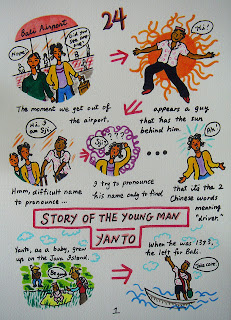 24
Bali Airport
Did you see our guy?
Hmm..
Hi!
The moment we get out of
the airport,
appears a guy
that has the sun
behind him.
Hi. I
am Sji.
Sji?
???
Oh!
Hmm, difficult name
to pronounce ...
I try to pronounce
his name only to find
That it's the 2
Chinese words
meaning
"driver."
STORY OF THE YOUNG MAN
YANTO
Yanto, as a baby, grew
up on the Java Island.
Be good
When he was 13 yrs,
he left for Bali.
Take care
1